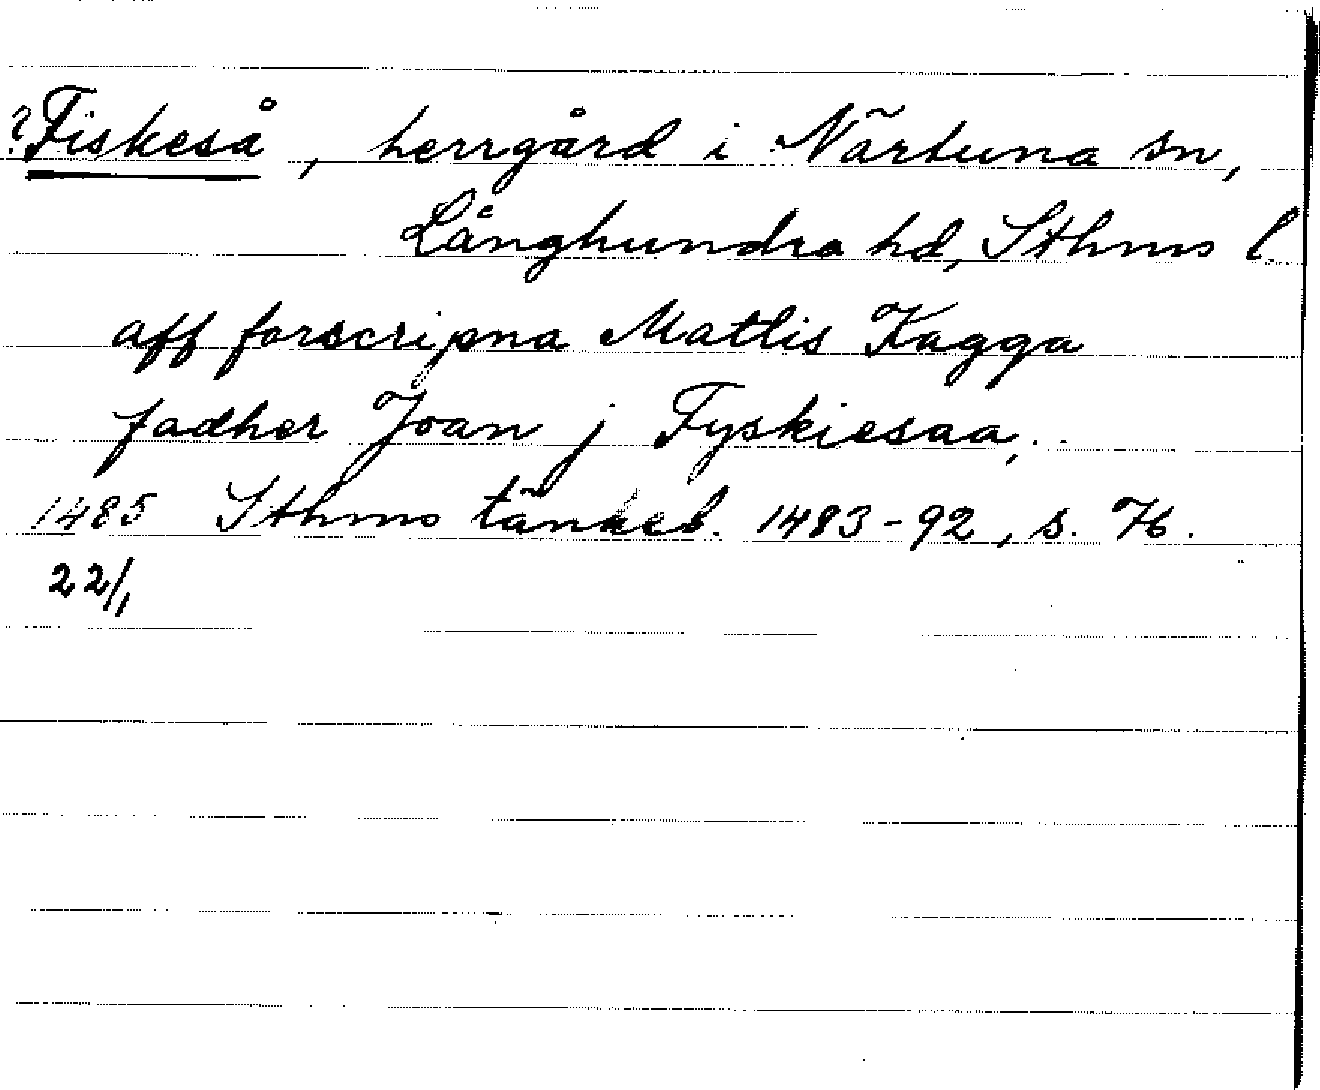 ? Fiskeså, herrgård i Närtuna sn,
Långhundra hd, Sthms l.
aff forscripna Mattis Kagga
fadher Joan j Fyskiesaa,..
1485 Sthms tänkeb. 1483-92, s. 76.
22/1